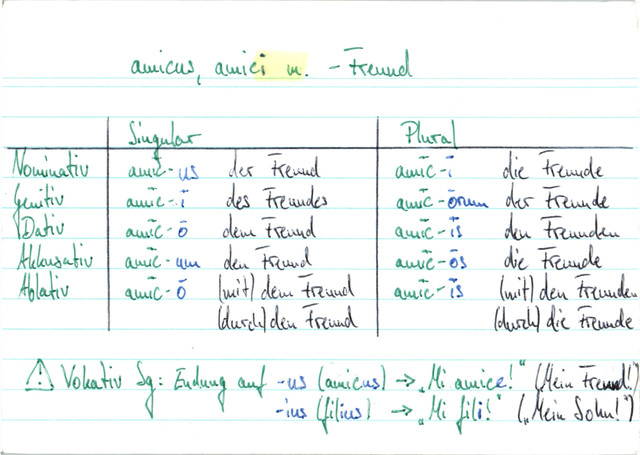 amicus, amici m. – Freund
Singular Plural
Nominativ amīc-us der Freund amīc-ī die Freunde
Genitiv amīc-ī des Freundes amīc-ōrum der Freunde
Dativ amīc-ō dem Freund amīc-īs den Freunden
Akkusativ amīc-um den Freund amīc-ōs die Freunde
Ablativ amīc-ō (mit) dem Freund amīc-īs (mit) den Freunden
(durch) den Freund (durch) die Freunde
! Vokativ Sg: Endung auf -us (amicus) → „Mi amice!" („Mein Freund!")
-ius (filius) → „Mi fili!" („Mein Sohn!")